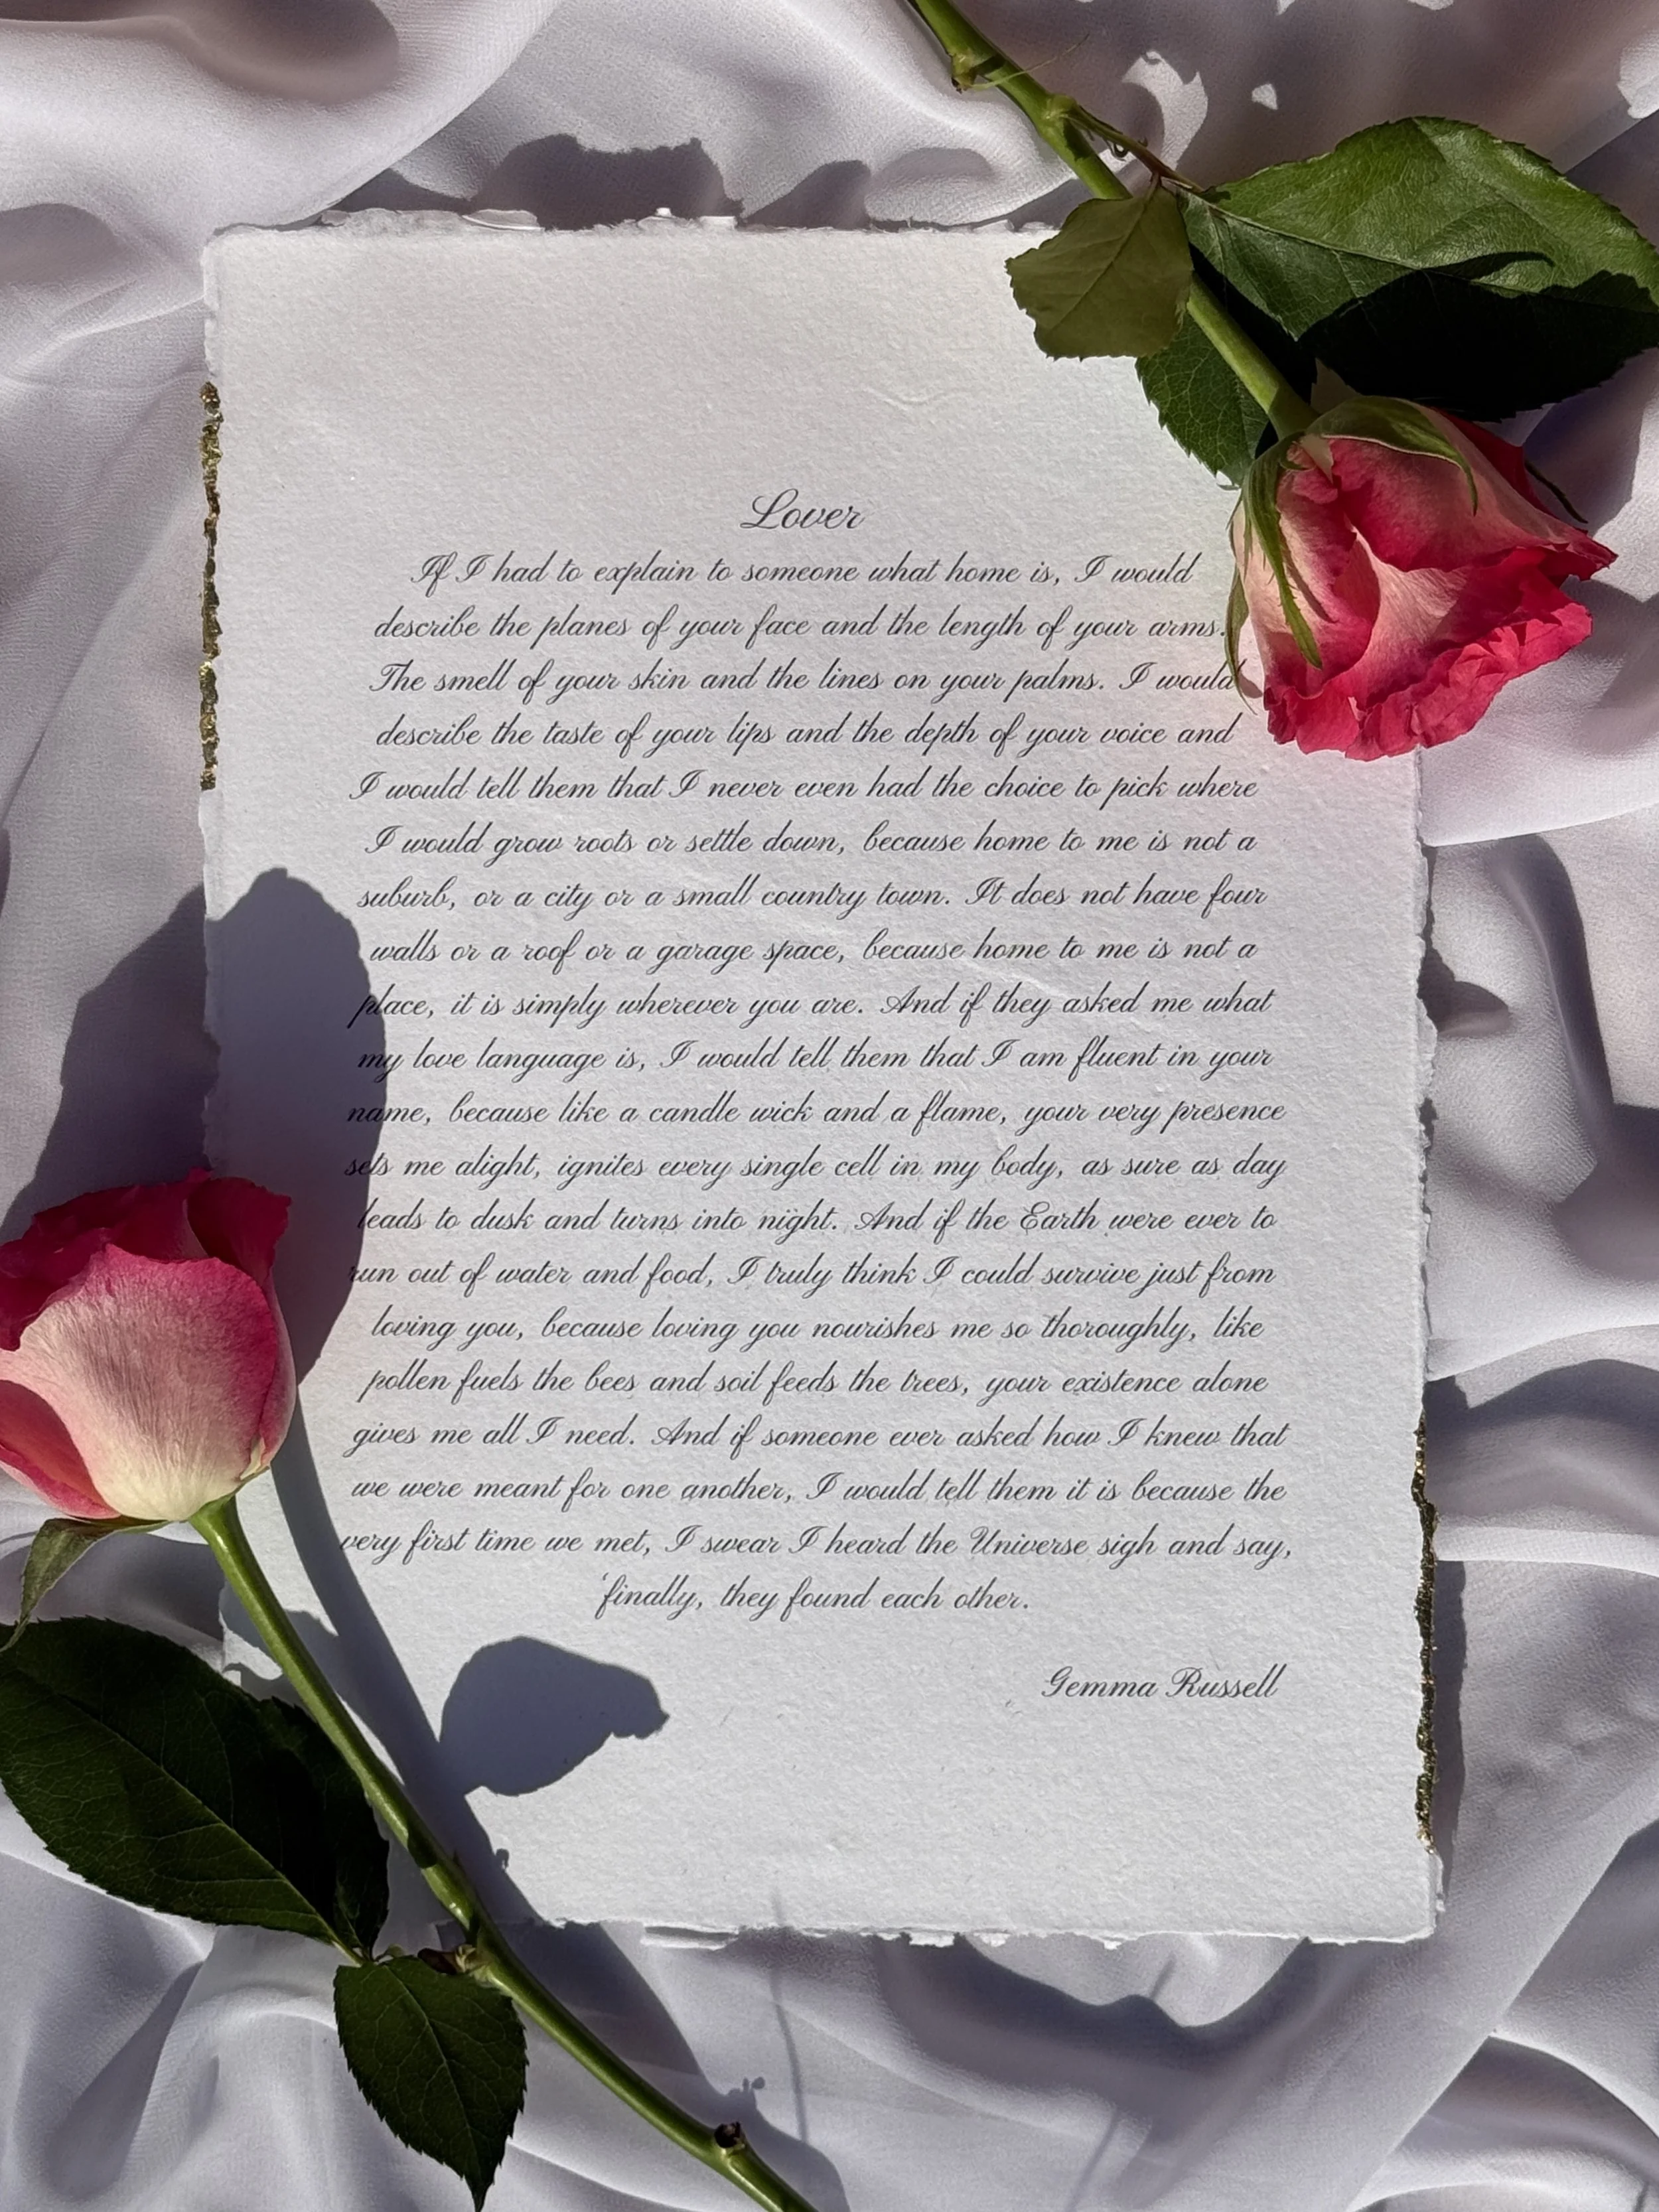 Lover
If I had to explain to someone what home is, I would
describe the planes of your face and the length of your arms.
The smell of your skin and the lines on your palms. I would
describe the taste of your lips and the depth of your voice and
I would tell them that I never even had the choice to pick where
I would grow roots or settle down, because home to me is not a
suburb, or a city or a small country town. It does not have four
walls or a roof or a garage space, because home to me is not a
place, it is simply wherever you are. And if they asked me what
my love language is, I would tell them that I am fluent in your
name, because like a candle wick and a flame, your very presence
sets me alight, ignites every single cell in my body, as sure as day
leads to dusk and turns into night. And if the Earth were ever to
run out of water and food, I truly think I could survive just from
loving you, because loving you nourishes me so thoroughly, like
pollen fuels the bees and soil feeds the trees, your existence alone
gives me all I need. And if someone ever asked how I knew that
we were meant for one another, I would tell them it is because the
very first time we met, I swear I heard the Universe sigh and say,
'finally, they found each other.
Gemma Russell